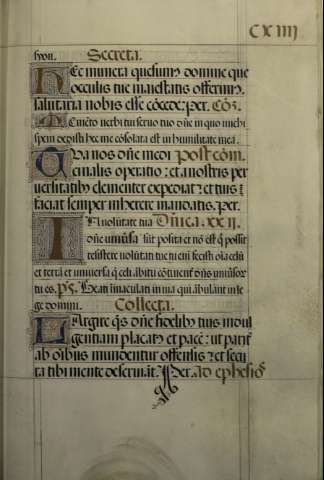 CXIIII
syon. Secreta.
Hec munera quesumus domine que
occulis tue maiestatis offerimus
salutaria nobis esse cōcede: per. Cōo.
Memēto verbi tui seruo tuo dn̄e in quo michi
spem dedisti hec me cōsolata est in humilitate mea.
Qua nos dn̄e medi Post cōm.
cinalis operatio: et a nostris per
uersitatibus clementer expediat: et tuis
faciat semper inherere mandatis. per.
IN volūtate tua Dn̄ica. XXII.
dn̄e uniuersa sūt posita et nō est qui possit
resistere volūtati tue tu eni fecisti oīa celū
et terrā et uniuersa que celi abitu cōtinentur dn̄s uniuersor
tu es. ps. Beati īmaculati in uia qui ābulant in le
ge domini. Collecta.
Largire qs dn̄e fidelibus tuis indul
gentiam placatus et pacē: ut pariter
ab oībus mundentur offensis et secu
ra tibi mente deseruiāt. Per. ad ephesios